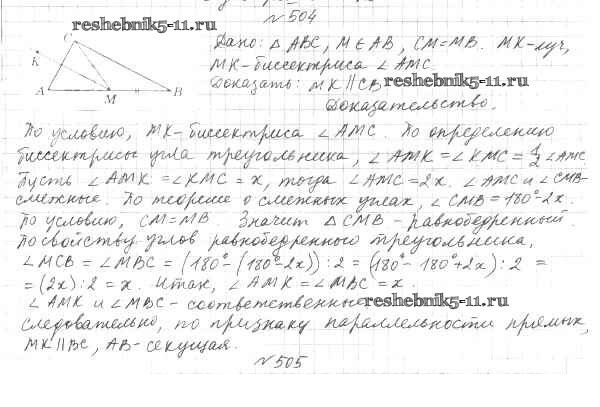 №504
reshebnik5-11.ru
C
K
A
M
B
Дано: △ ABC, M ∈ AB, CM=MB. MK-луч,
MK-биссектриса ∠ AMC.
Доказать: MK || CB
reshebnik5-11.ru
Доказательство.
По условию, MK-биссектриса ∠AMC. По определению
биссектрисы угла треугольника, ∠ AMK = ∠ KMC = 1/2 ∠ AMC
Пусть ∠ AMK = ∠ KMC = x, тогда ∠ AMC = 2x. ∠ AMC и ∠ CMB-
смежные. По теореме о смежных углах, ∠ CMB = 180°-2x.
По условию, CM=MB. Значит △ CMB - равнобедренный.
По свойству углов равнобедренного треугольника,
∠ MCB = ∠ MBC = (180°-(180°-2x)) : 2 = (180°-180°+2x) : 2 =
= (2x) : 2 = x. Итак, ∠ AMK = ∠ MBC = x.
∠ AMK и ∠ MBC - соответственные
reshebnik5-11.ru
следовательно, по признаку параллельности прямых,
MK || BC, AB-секущая.
№505